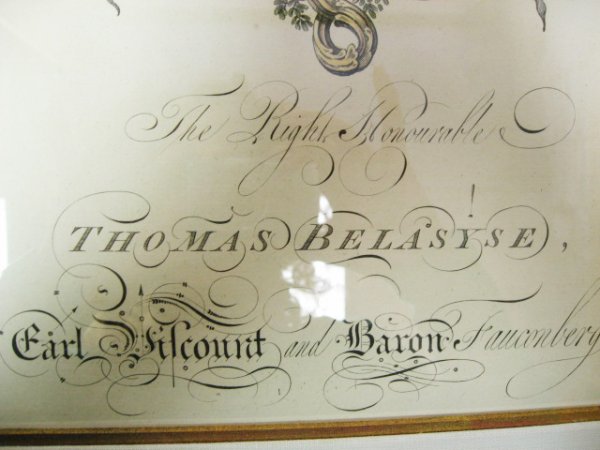 The Right Honourable
THOMAS BELASYSE,
Earl Viscount and Baron Fauconberg